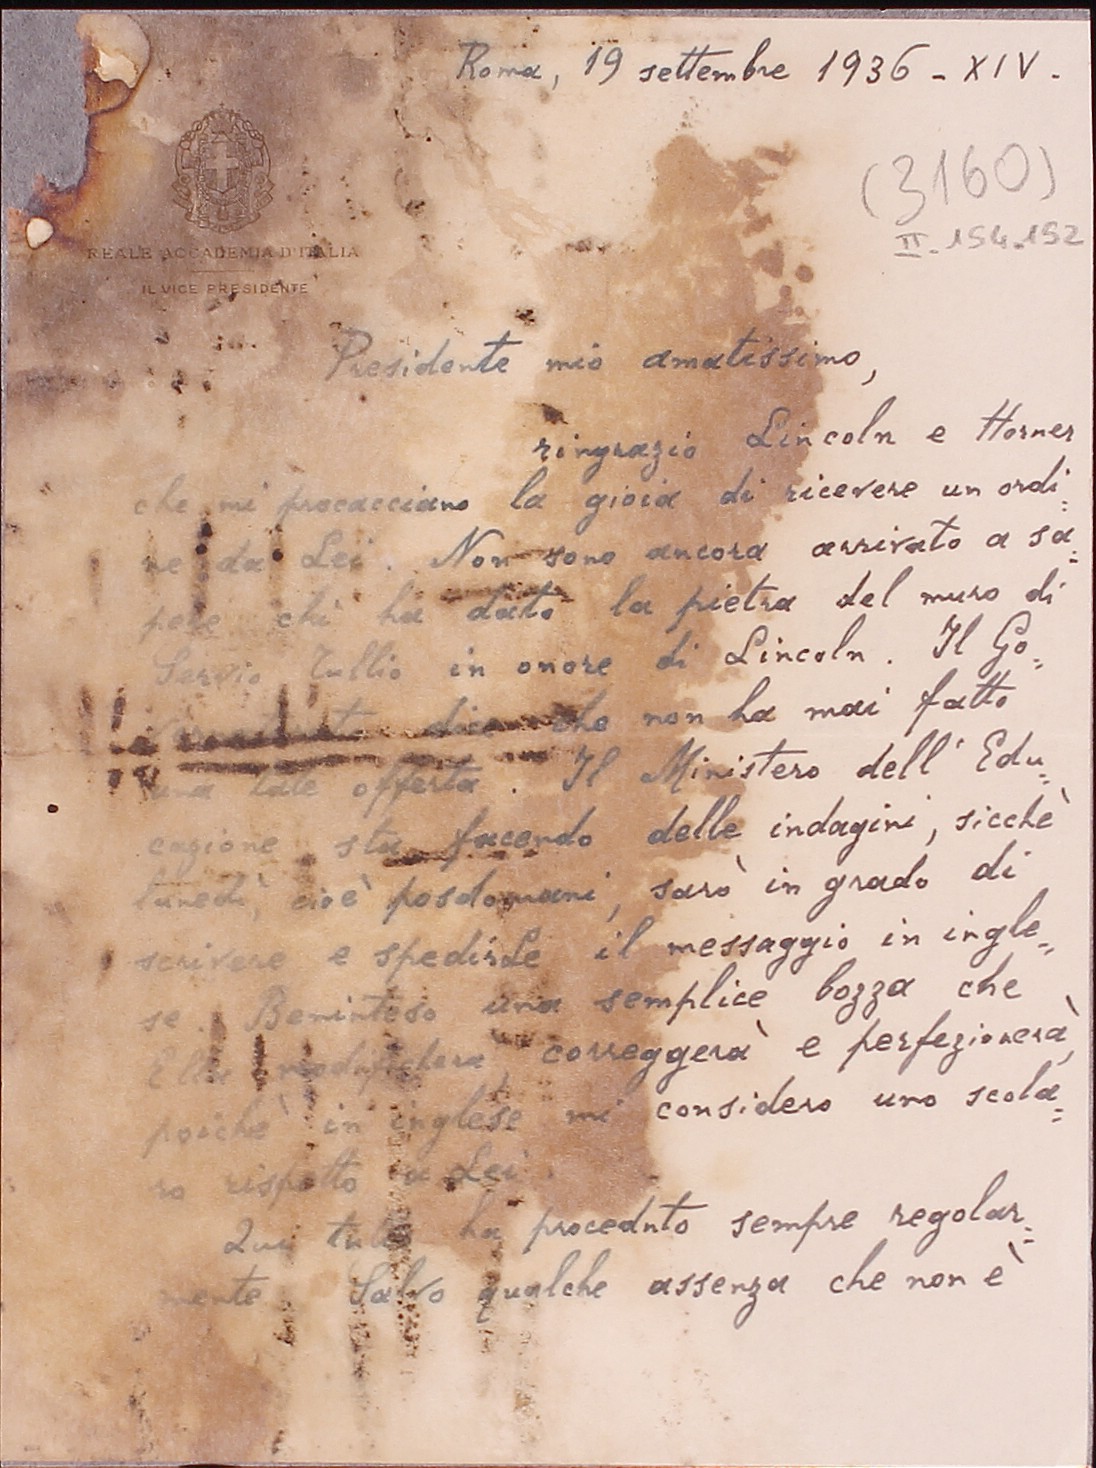 Roma, 19 settembre 1936 - XIV.
(3160)
II. 154.152
REALE ACCADEMIA D'ITALIA
IL VICE PRESIDENTE
Presidente mio amatissimo,
ringrazio Lincoln e Horner
che mi procacciano la gioia di ricevere un ordi=
ne da Lei. Non sono ancora arrivato a sa=
pere chi ha dato la pietra del muro di
Servio Tullio in onore di Lincoln. Il Go=
vernatorato dice che non ha mai fatto
una tale offerta. Il Ministero dell'Edu=
cazione sta facendo delle indagini, sicchè
lunedì, cioè posdomani, sarò in grado di
scrivere e spedirLe il messaggio in ingle=
se. Beninteso una semplice bozza che
Ella modificherà, correggerà e perfezionerà,
poichè in inglese mi considero uno scola=
ro rispetto a Lei.
Qui tutto ha proceduto sempre regolar=
mente. Salvo qualche assenza che non è